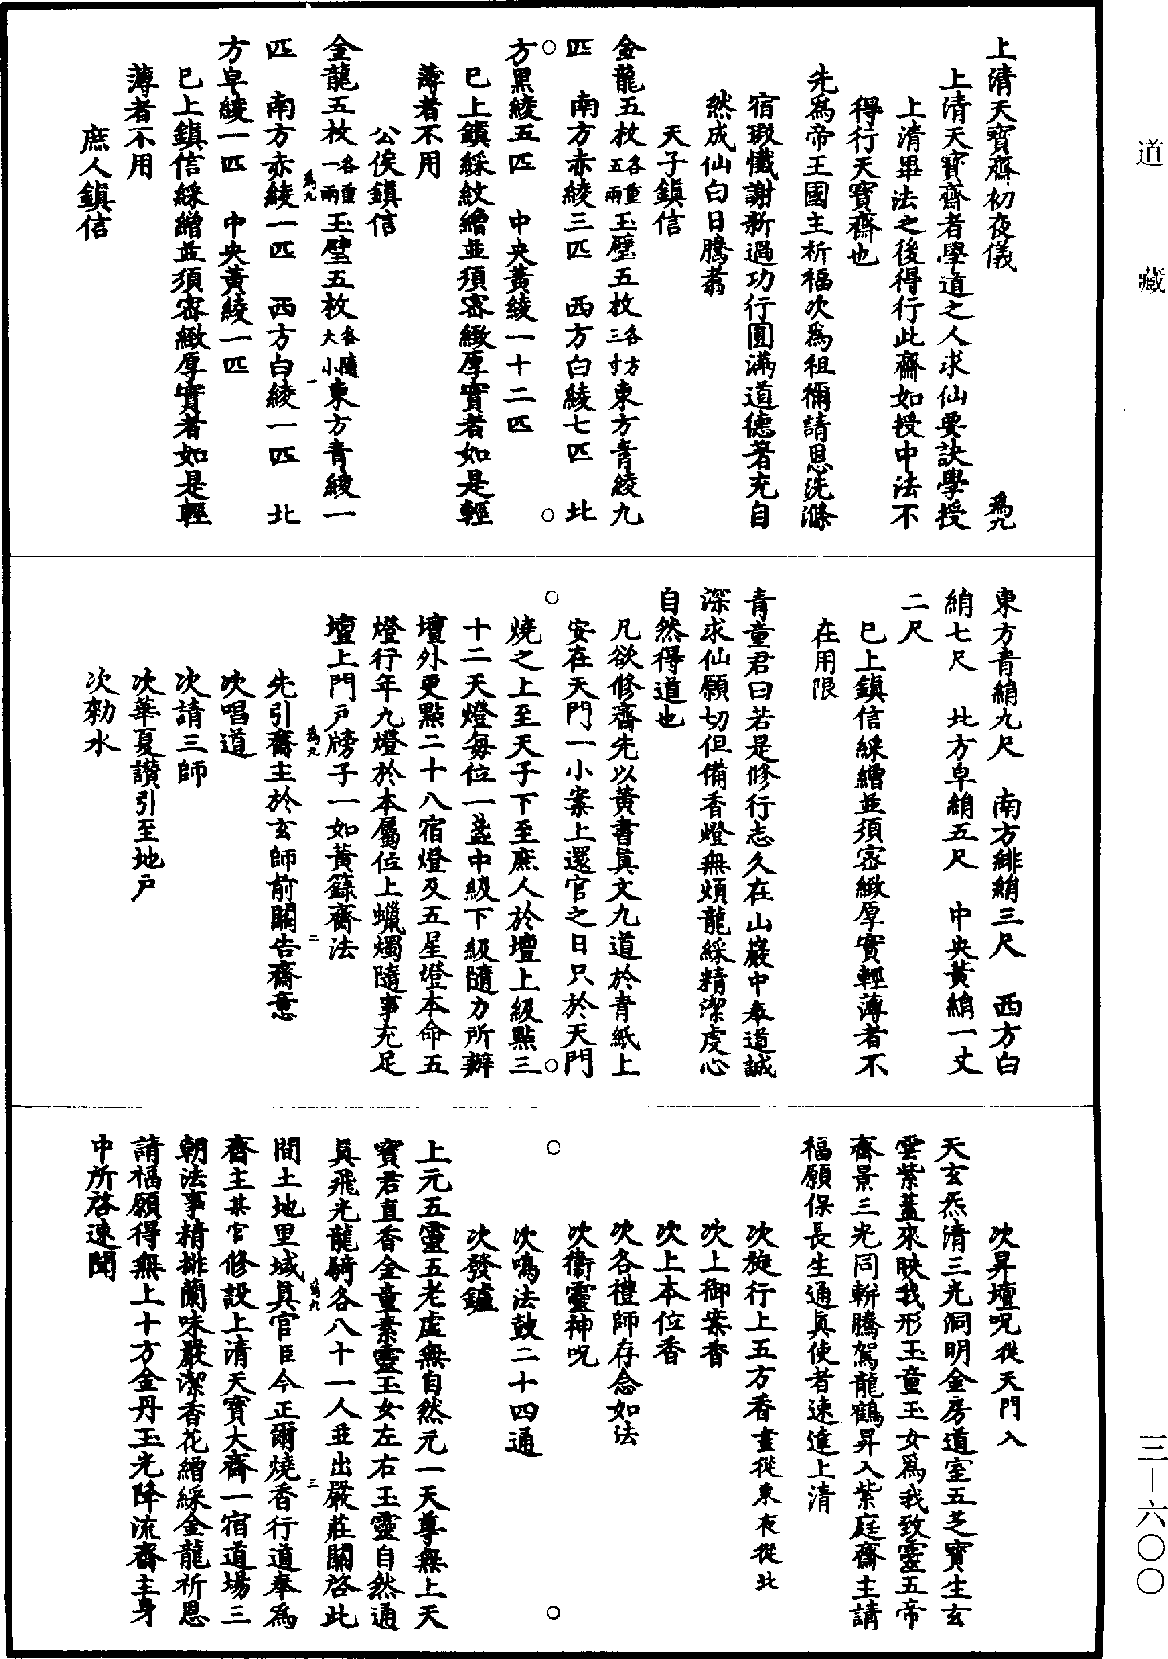 道藏
三—六〇〇
上清天寶齋初夜儀　為九
上清天寶齋者學道之人求仙要訣學授
上清畢法之後得行此齋如授中法不
得行天寶齋也
先為帝王國主祈福次為祖禰請恩洗滌
宿瑕懺謝新過功行圓滿道德著充自
然成仙白日騰翥
天子鎮信
金龍五枚各重五兩玉璧五枚各方三寸東方青綾九
匹　南方赤綾三匹　西方白綾七匹　北
方黑綾五匹　中央黃綾一十二匹
已上鎮綵紋繒並須密緻厚實者如是輕
薄者不用
公侯鎮信
金龍五枚各重一兩玉璧五枚各隨大小東方青綾一
為九　一
匹　南方赤綾一匹　西方白綾一匹　北
方皁綾一匹　中央黃綾一匹
已上鎮信綵繒並須密緻厚實者如是輕
薄者不用
庶人鎮信
東方青綃九尺　南方緋綃三尺　西方白
綃七尺　北方皁綃五尺　中央黃綃一丈
二尺
已上鎮信綵繒並須密緻厚實輕薄者不
在用限
青童君曰若是修行志久在山巖中奉道誠
深求仙願切但備香燈無煩龍綵精潔虔心
自然得道也
凡欲修齋先以黃書真文九道於青紙上
安在天門一小案上還官之日只於天門
燒之上至天子下至庶人於壇上級點三
十二天燈每位一盞中級下級隨力所辦
壇外更點二十八宿燈及五星燈本命五
燈行年九燈於本屬位上蠟燭隨事充足
壇上門戶牓子一如黃籙齋法
為九　二
先引齋主於玄師前關告齋意
次唱道
次請三師
次華夏讚引至地戶
次勑水
次昇壇呪從天門入
天玄炁清三光洞明金房道室五芝寶生玄
雲紫蓋來映我形玉童玉女為我致靈五帝
齋景三光同軿騰駕龍鶴昇入紫庭齋主請
福願保長生通真使者速達上清
次旋行上五方香晝從東夜從北
次上御案香
次上本位香
次各禮師存念如法
次衞靈神呪
次鳴法鼓二十四通
次發鑪
上元五靈五老虛無自然元一天尊無上天
寶君直香金童素靈玉女左右玉靈自然通
真飛光龍騎各八十一人並出嚴莊關啓此
為九　三
間土地里域真官臣今正爾燒香行道奉為
齋主某官修設上清天寶大齋一宿道場三
朝法事精排蘭味嚴潔香花繒綵金龍祈恩
請福願得無上十方金丹玉光降流齋主身
中所啓速聞